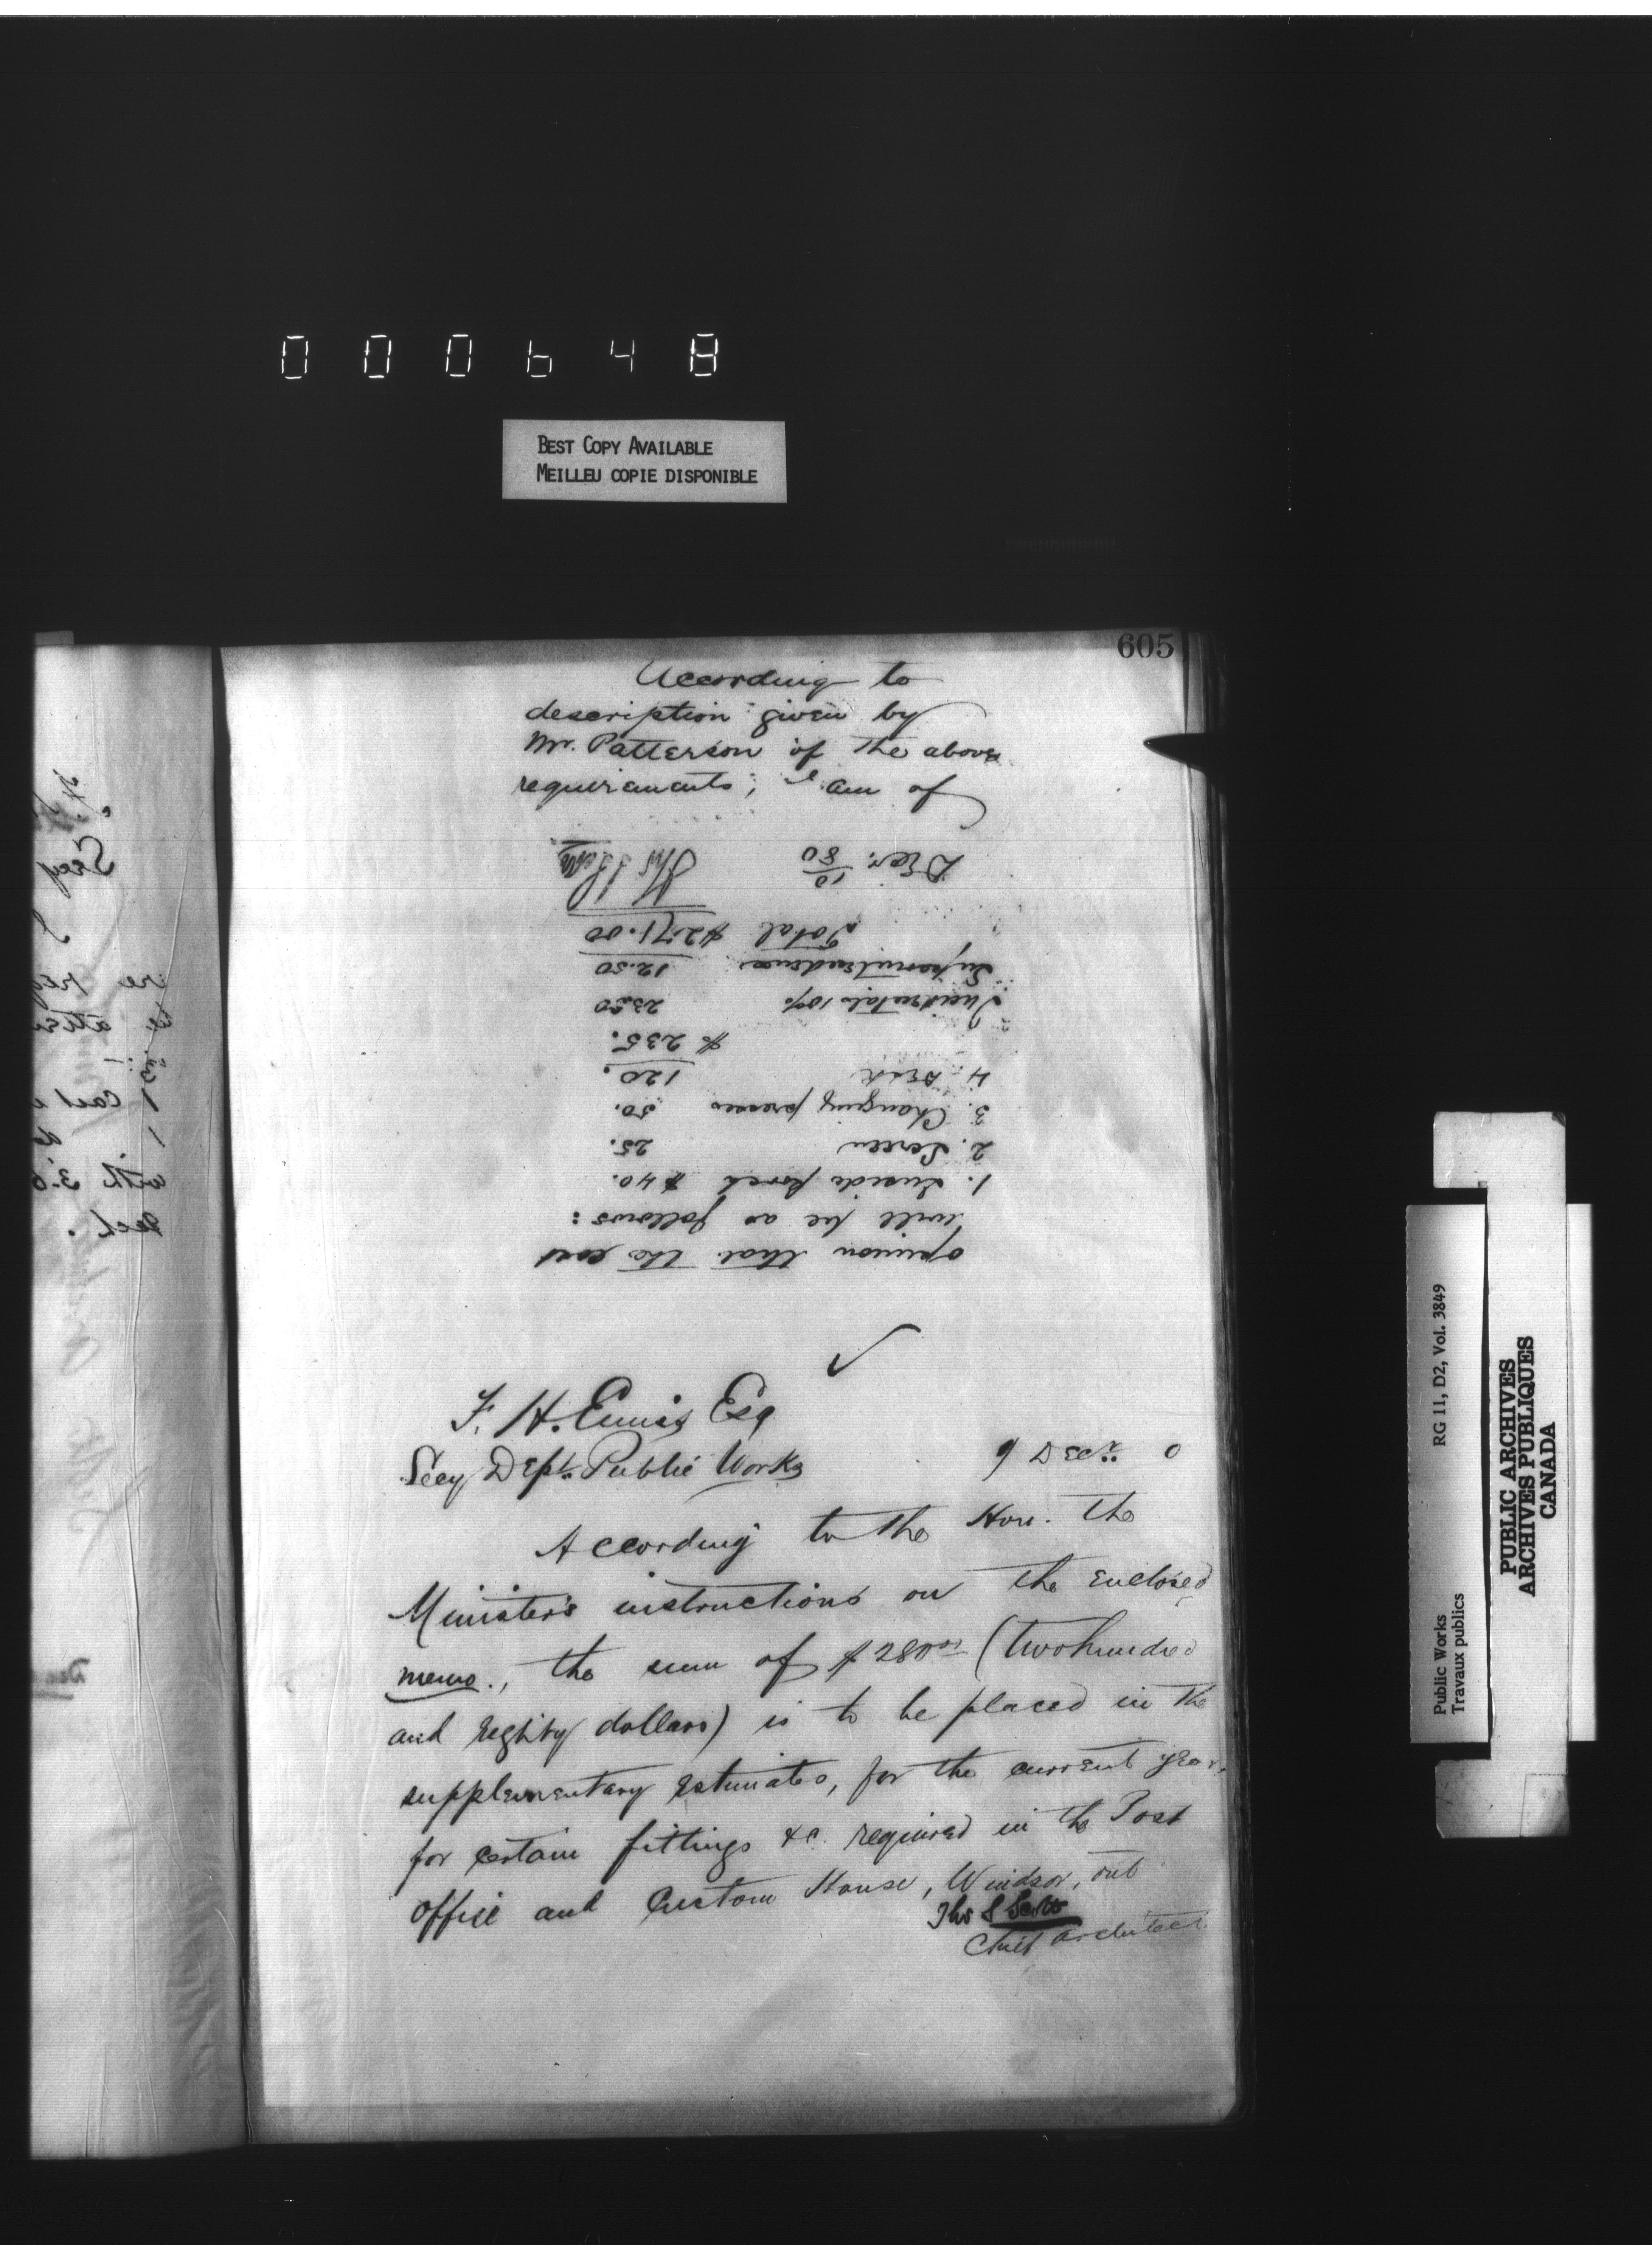 000648
BEST COPY AVAILABLE
MEILLEU COPIE DISPONIBLE
605
According to
description given by
Mr. Patterson of the above
requirements; I am of
opinion that the cost
will be as follows:
1. Inside porch $40.
2. Screen 25.
3. Changing presses 50.
4. Desk 120.
$ 235.
Incidentals 10% 23.50
Superintendence 12.50
Total $271.00
Thos S Scott
Decr. 10/80
F. H. Ennis Esq
Secy Dept. Public Works
9 Decr. 0
According to the Hon. the
Minister's instructions on the enclosed
memo., the sum of $280.00 (two hundred
and eighty dollars) is to be placed in the
supplementary estimates, for the current year,
for certain fittings &c. required in the Post
Office and Custom House, Windsor, Ont
Thos S Scott
Chief Architect
Secy
with 3'.6
RG 11, D2, Vol. 3849
Public Works
Travaux publics
PUBLIC ARCHIVES
ARCHIVES PUBLIQUES
CANADA